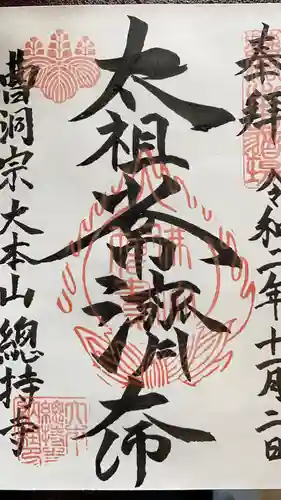 奉拝 令和二年十一月二日
太祖常濟大師
曹洞宗大本山 總持寺